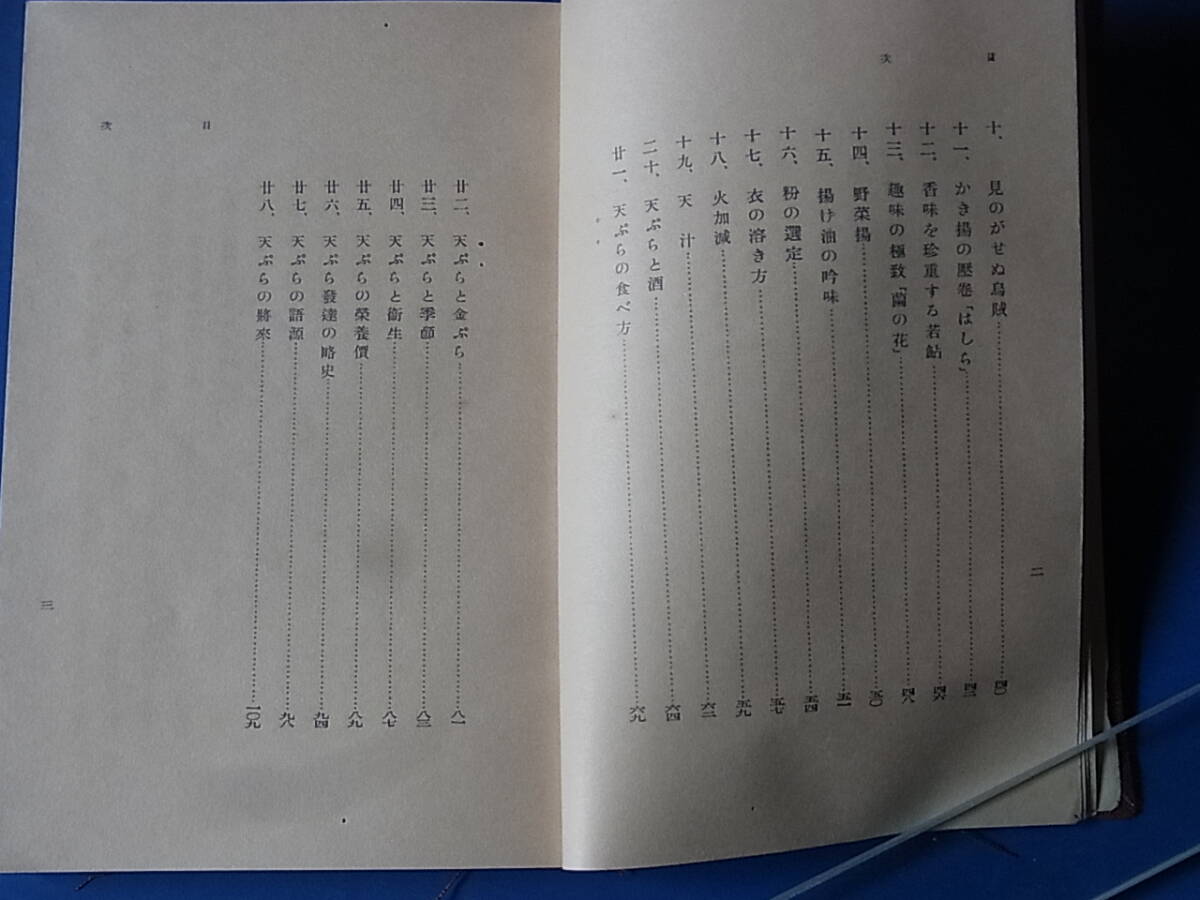 目次
十、見のがせぬ烏賊……四〇
十一、かき揚の壓卷「はしら」……四三
十二、香味を珍重する若鮎……四六
十三、趣味の極致「蘭の花」……四八
十四、野菜揚……五〇
十五、揚げ油の吟味……五一
十六、粉の選定……五四
十七、衣の溶き方……五七
十八、火加減……五九
十九、天汁……六二
二十、天ぷらと酒……六四
廿一、天ぷらの食べ方……六九
二
目次
廿二、天ぷらと金ぷら……八一
廿三、天ぷらと季節……八三
廿四、天ぷらと衞生……八七
廿五、天ぷらの榮養價……八九
廿六、天ぷら發達の略史……九四
廿七、天ぷらの語源……九八
廿八、天ぷらの將來……一〇九
三